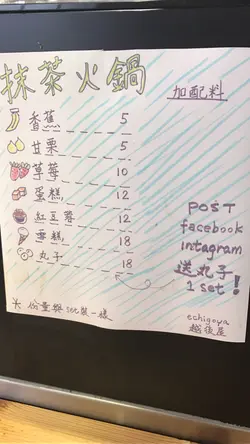 抹茶火鍋
加配料
香蕉 5
甘栗 5
草莓 10
蛋糕 12
紅豆蓉 12
雪糕 18
丸子 18
POST
facebook
intagram
送丸子
1 set!
* 份量與set裝一樣
echigoya
越後屋